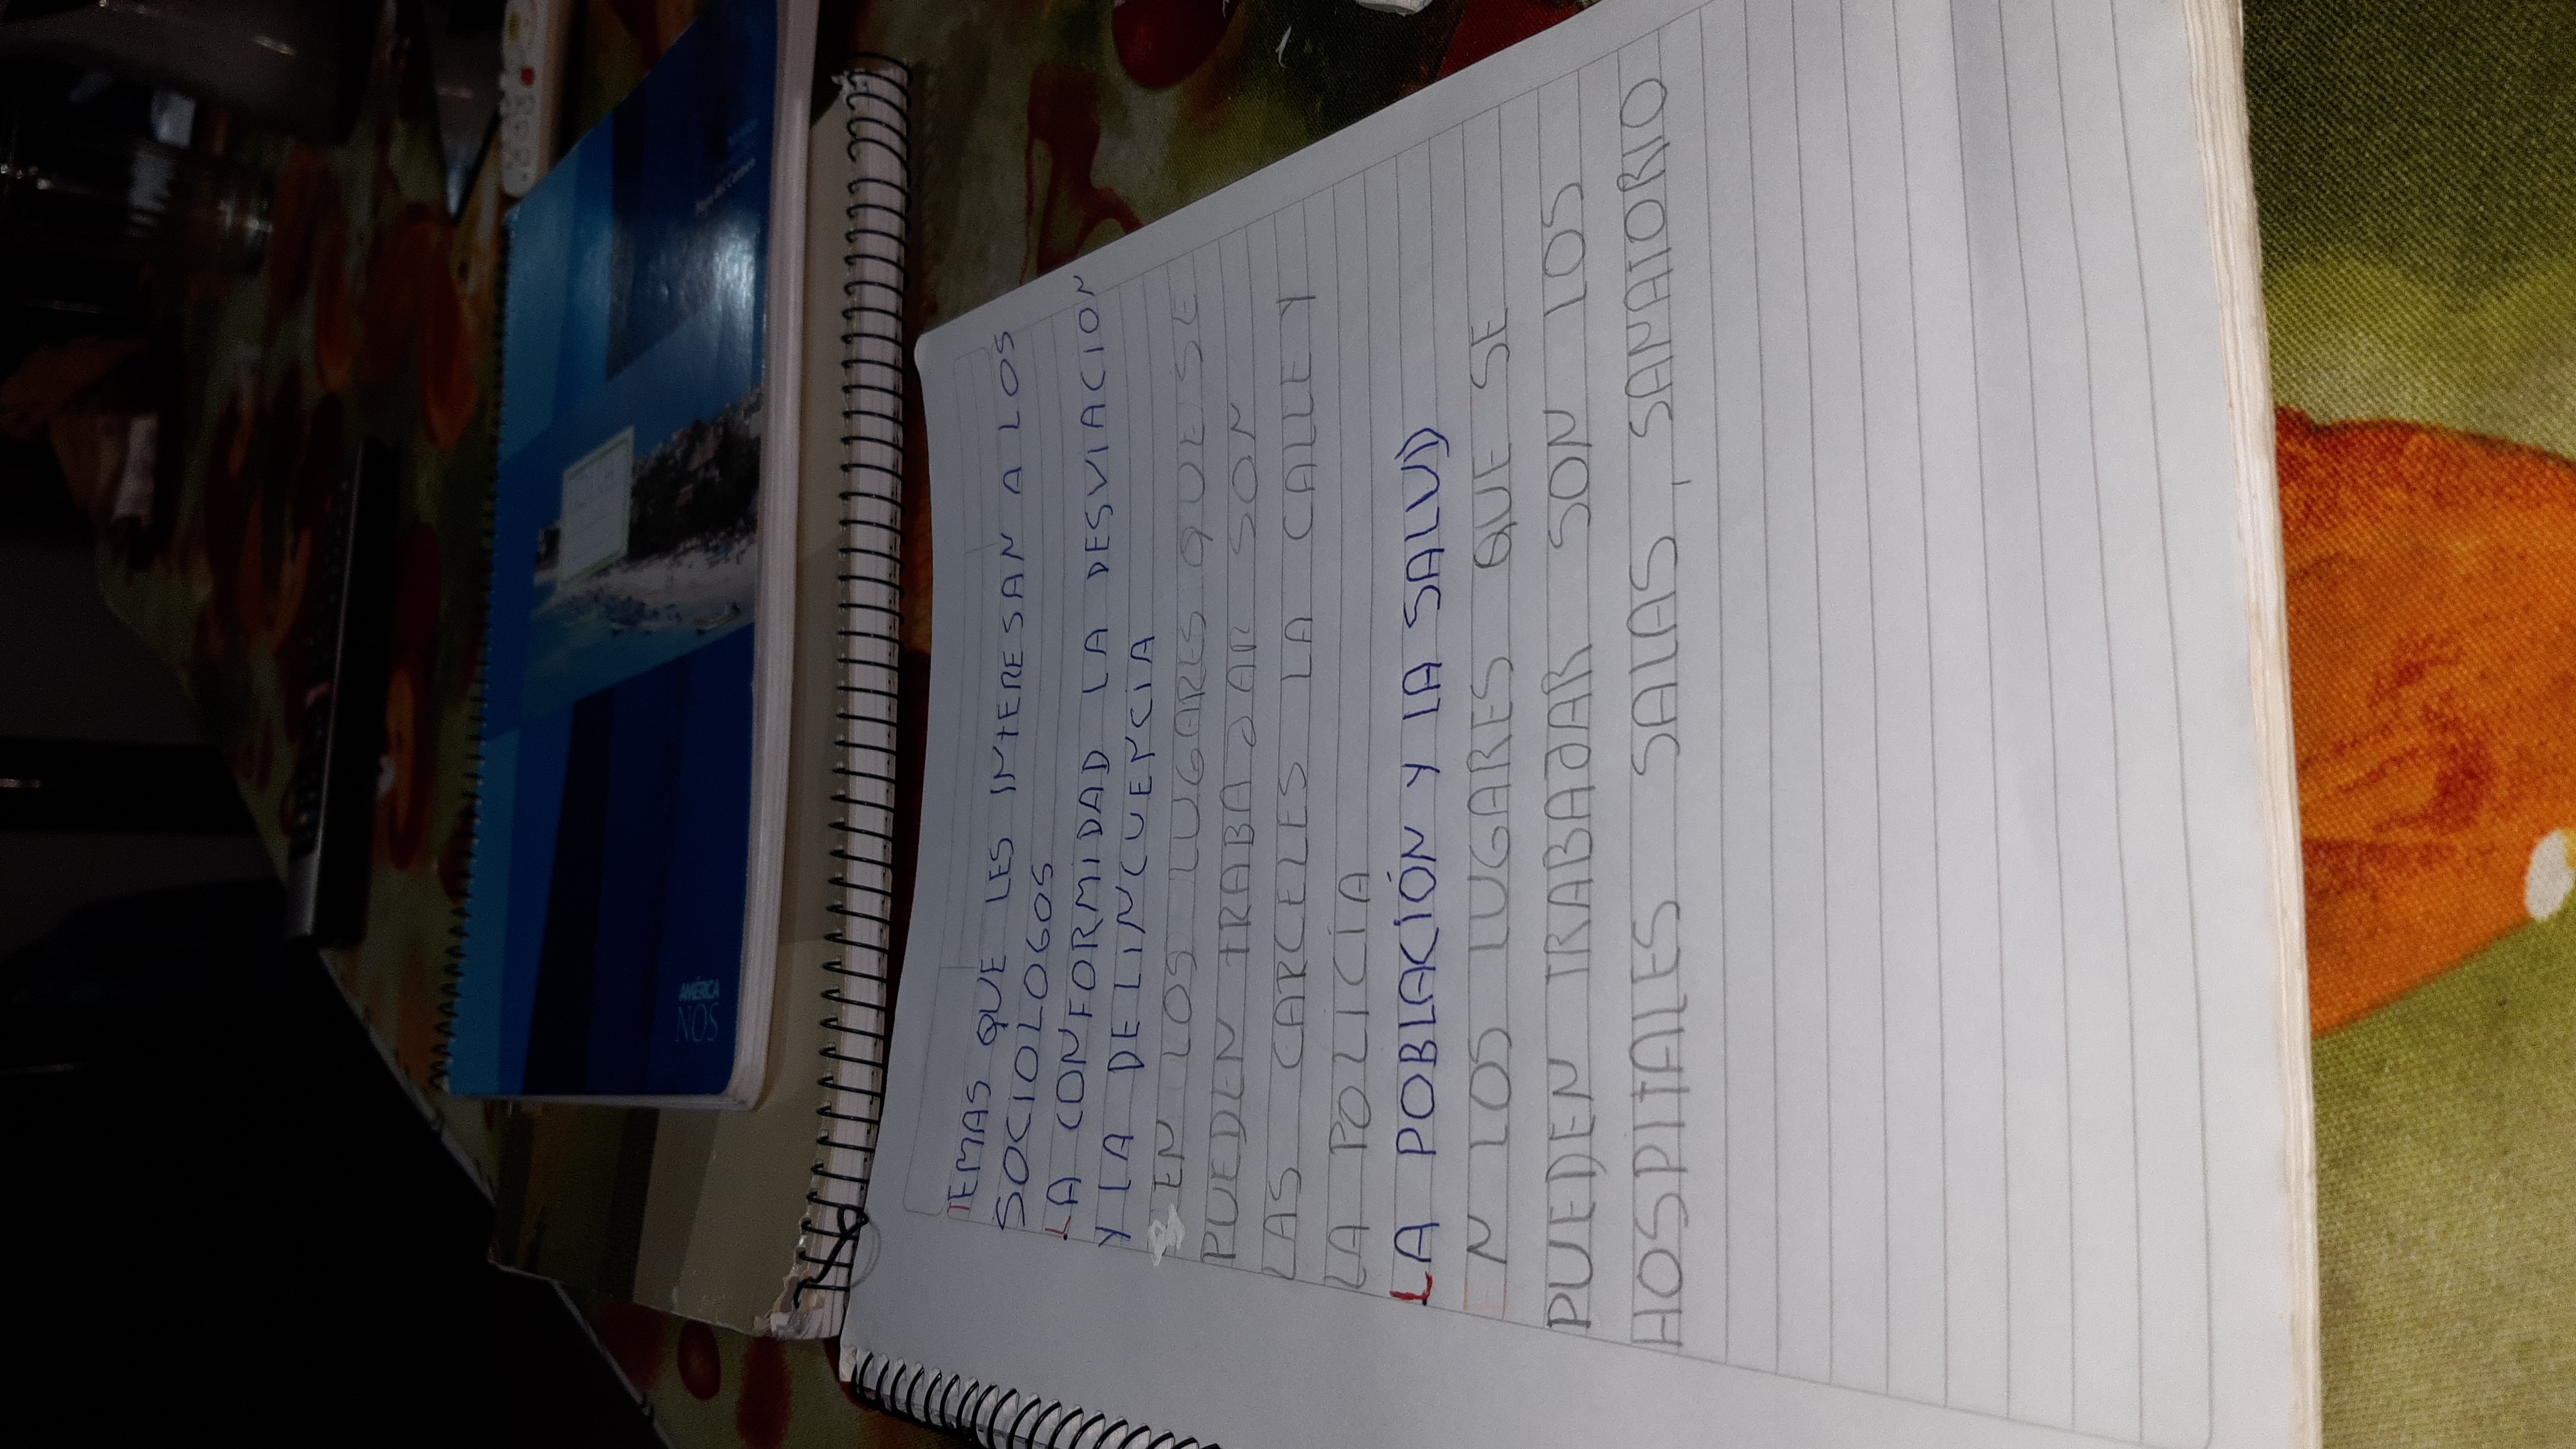 TEMAS QUE LES INTERESAN A LOS
SOCIOLOGOS
LA CONFORMIDAD LA DESVIACION
Y LA DELINCUENCIA
EN LOS LUGARES QUE SE
PUEDEN TRABAJAR SON
LAS CARCELES LA CALLE Y
LA POLICIA
LA POBLACIÓN Y LA SALUD
N LOS LUGARES QUE SE
PUEDEN TRABAJAR SON LOS
HOSPITALES SALAS, SANATORIO
AMÉRICA
NOS